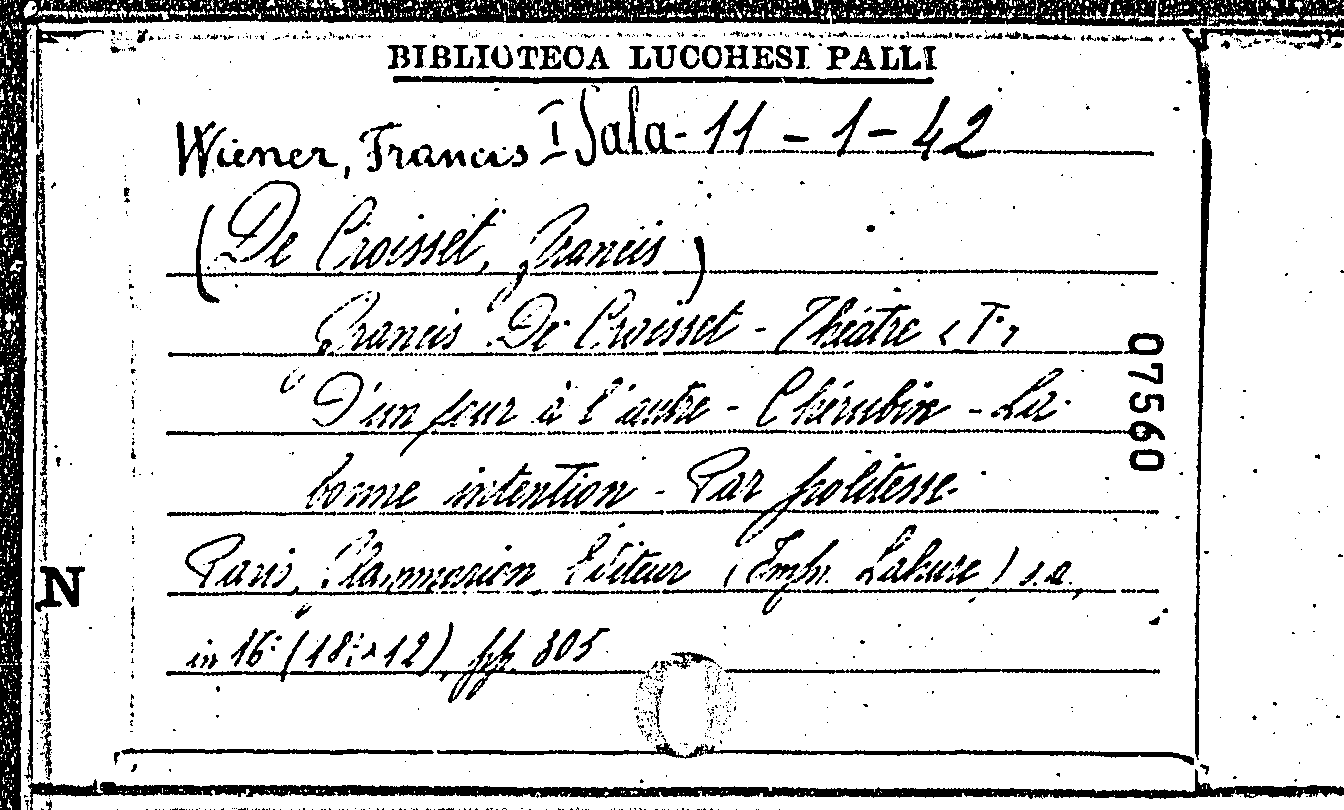 BIBLIOTECA LUCCHESI PALLI
Wiener, Francis I Sala - 11 - 1 - 42
(De Croisset, Francis)
Francis De Croisset - Théâtre
D'un jour à l'autre - Chérubin - La
bonne intention - Par politesse
Paris, Flammarion Editeur (Impr. Lahure) s.a.
in 16° (18 × 12), pp. 305
07560
N